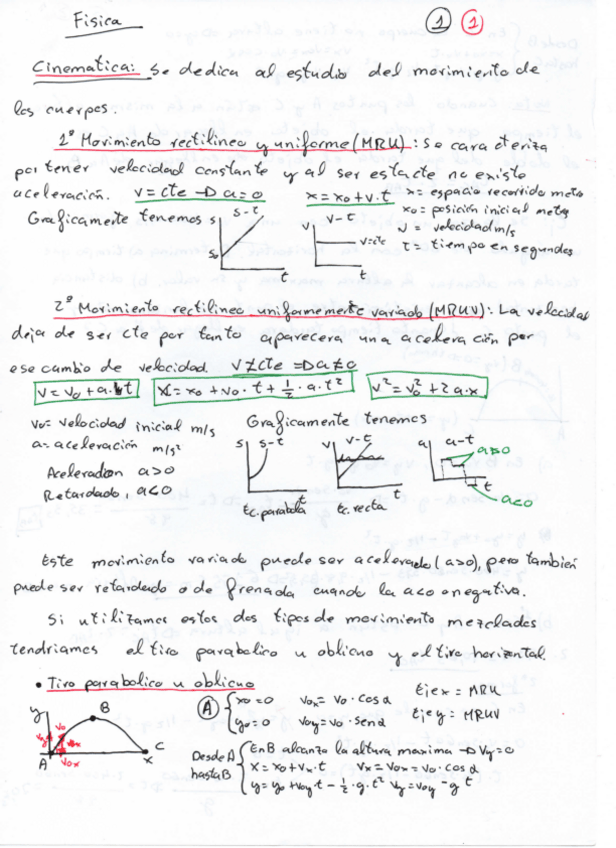 Fisica
1 1
Cinematica: Se dedica al estudio del movimiento de
los cuerpos.
1º Movimiento rectilineo y uniforme (MRU): Se caracteriza
por tener velocidad constante y al ser esta cte no existe
aceleración. v = cte → a = 0 x = x0 + v·t x = espacio recorrido metros
x0 = posición inicial metros
Graficamente tenemos s s-t v v-t v = velocidad m/s
s0 t v=cte t t = tiempo en segundos
2º Movimiento rectilineo uniformemente variado (MRUV): La velocidad
deja de ser cte por tanto aparecera una aceleración por
ese cambio de velocidad. v ≠ cte ⇒ a ≠ 0
v = v0 + a·t x = x0 + v0·t + 1/2·a·t² v² = v0² + 2a·x
v0 = velocidad inicial m/s Graficamente tenemos
a = aceleración m/s² s s-t v v-t a a-t a>0
Aceleradon a>0
Retardado, a<0 t t t a<0
tc. parabola tc. recta
Este movimiento variado puede ser acelerado (a>0), pero también
puede ser retardado o de frenada cuando la a<0 o negativa.
Si utilizamos estos dos tipos de movimiento mezclados
tendriamos el tiro parabolico u oblicuo y el tiro horizontal.
• Tiro parabolico u oblicuo
A x0 = 0 v0x = v0 · cos α Eje x = MRU
y0 = 0 v0y = v0 · sen α Eje y = MRUV
y B v0 v0y A v0x C x
Desde A hasta B En B alcanzo la altura maxima → Vy = 0
x = x0 + vx·t Vx = V0x = v0·cos α
y = y0 + v0y t - 1/2·g·t² vy = v0y - g t